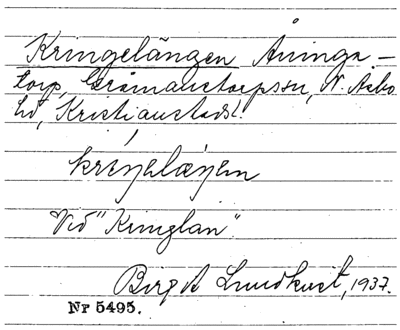 Kringelängen Åninga-
torp, Gråmanstorpssn, N. Åsbo
hd, Kristianstads l.
kriŋelæŋen
Vid "Kringlan"
Birgit Lundkvist, 1937.
Nr 5495.